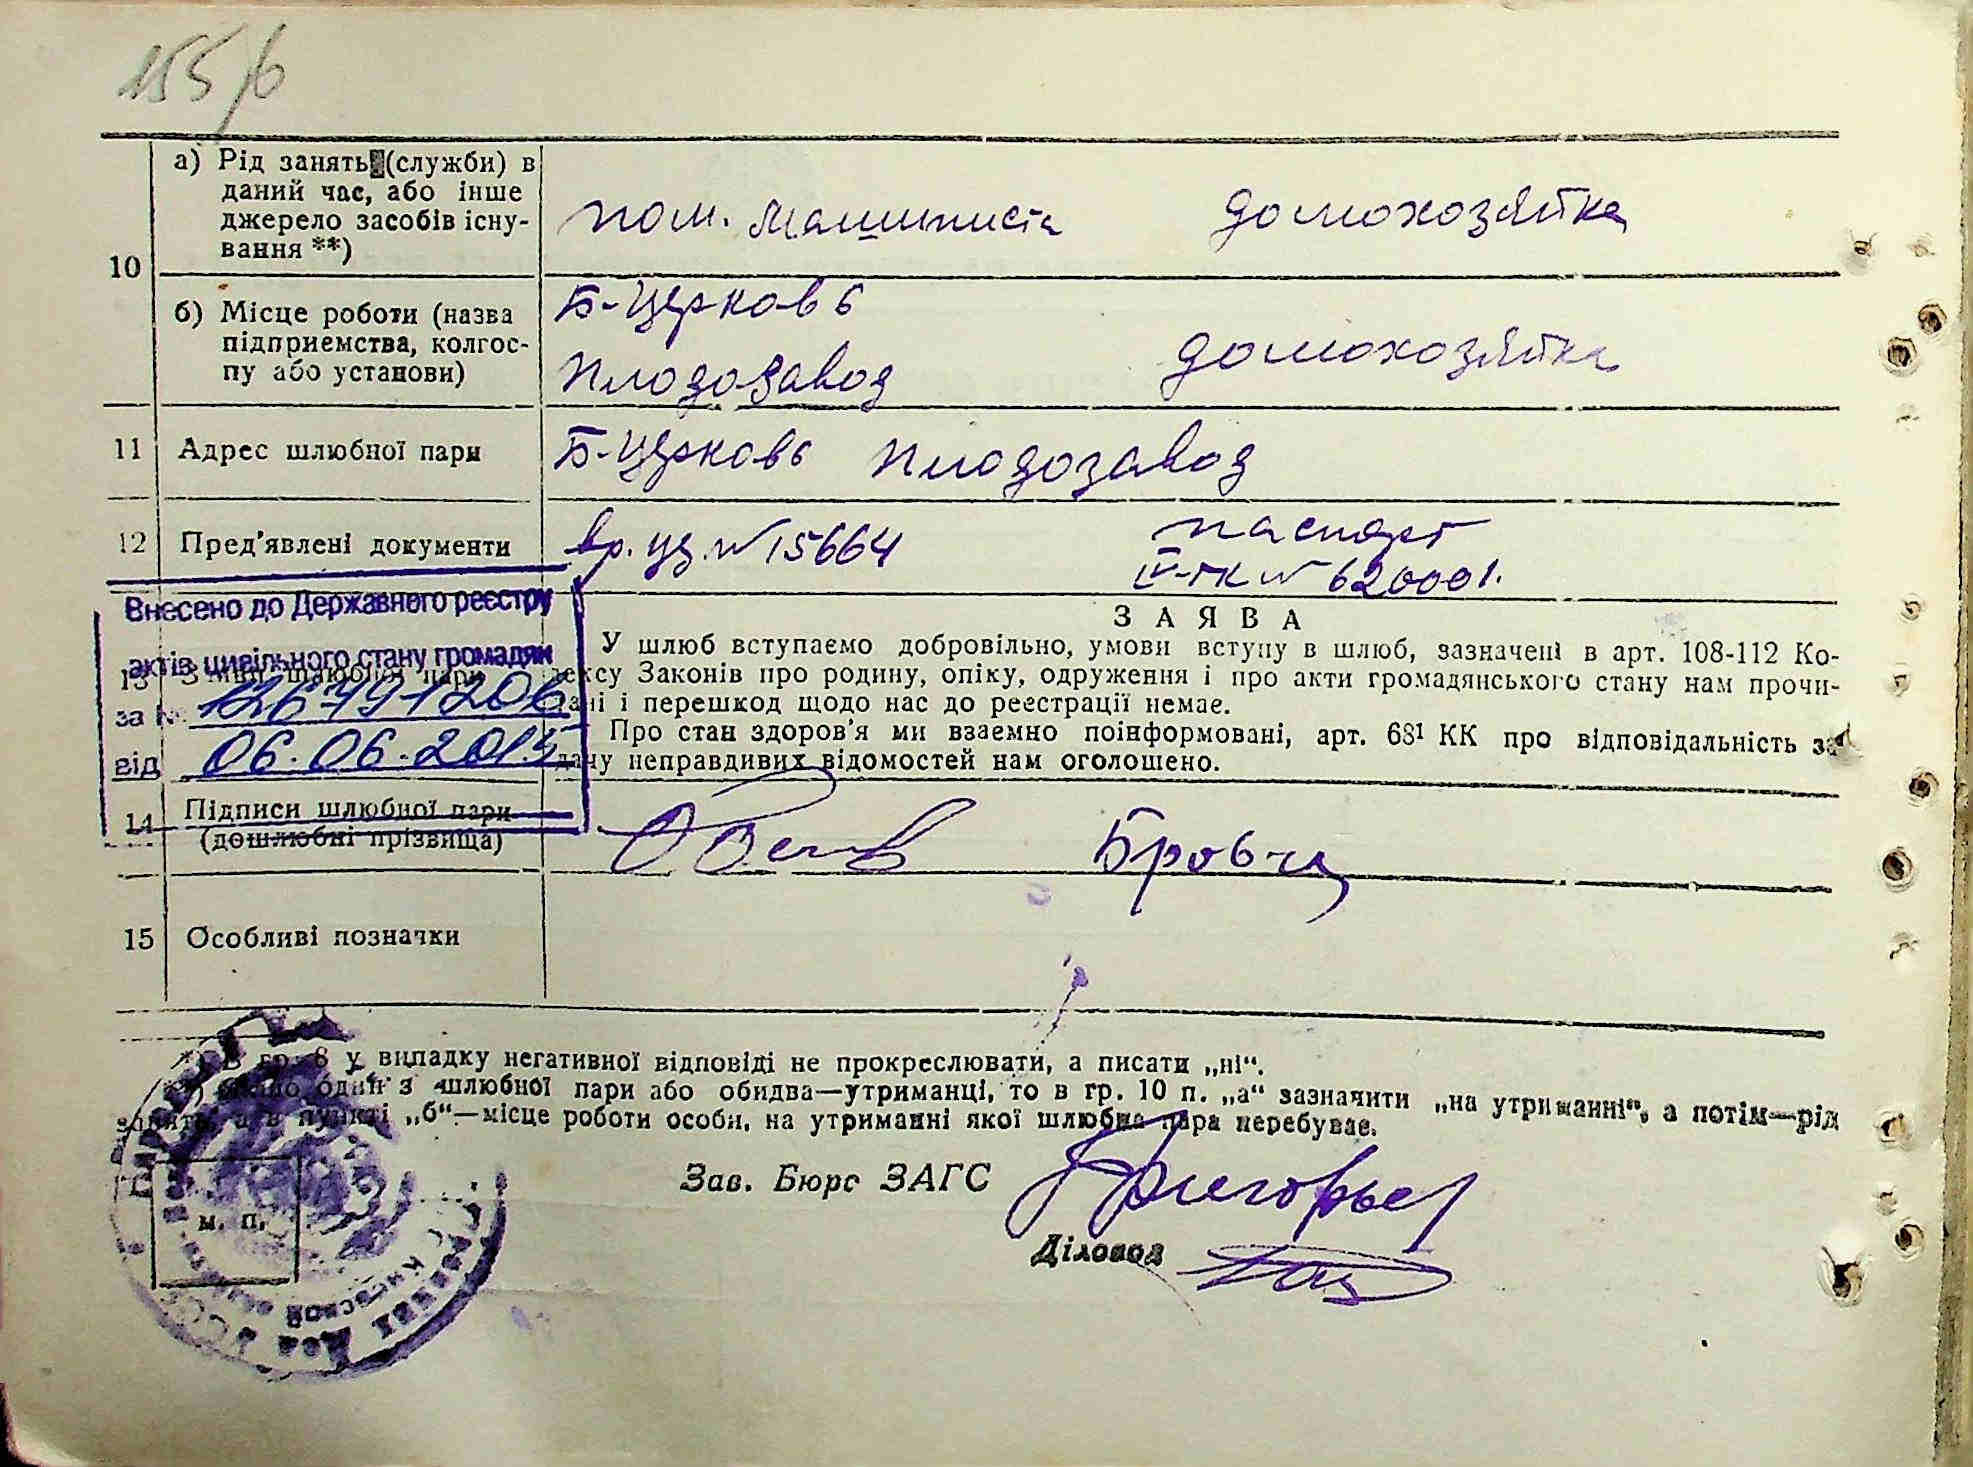 155/6
10
а) Рід занять (служби) в
даний час, або інше
джерело засобів існу-
вання **)
пом. машиниста
домохозяйка
б) Місце роботи (назва
підприємства, колгос-
пу або установи)
Б-Церковь
плодозавод
домохозяйка
11 Адрес шлюбної пари
Б-Церковь плодозавод
12 Пред'явлені документи
вр. уд. № 15664
паспорт
№ 620001.
Внесено до Державного реєстру
актів цивільного стану громадян
за №
від 06.06.2013
13
шлюбної пари
ЗАЯВА
У шлюб вступаємо добровільно, умови вступу в шлюб, зазначені в арт. 108-112 Ко-
дексу Законів про родину, опіку, одруження і про акти громадянського стану нам прочи-
тані і перешкод щодо нас до реєстрації немає.
Про стан здоров'я ми взаємно поінформовані, арт. 68¹ КК про відповідальність за
дачу неправдивих відомостей нам оголошено.
14 Підписи шлюбної пари
(дошлюбні прізвища)
15 Особливі позначки
*) В гр. 8 у випадку негативної відповіді не прокреслювати, а писати „ні“.
**) Якщо один з шлюбної пари або обидва—утриманці, то в гр. 10 п. „а“ зазначити „на утриманні“, а потім—рід
занять, а в пункті „б“—місце роботи особи, на утриманні якої шлюбна пара перебуває.
Зав. Бюро ЗАГС
Діловод
м. п.